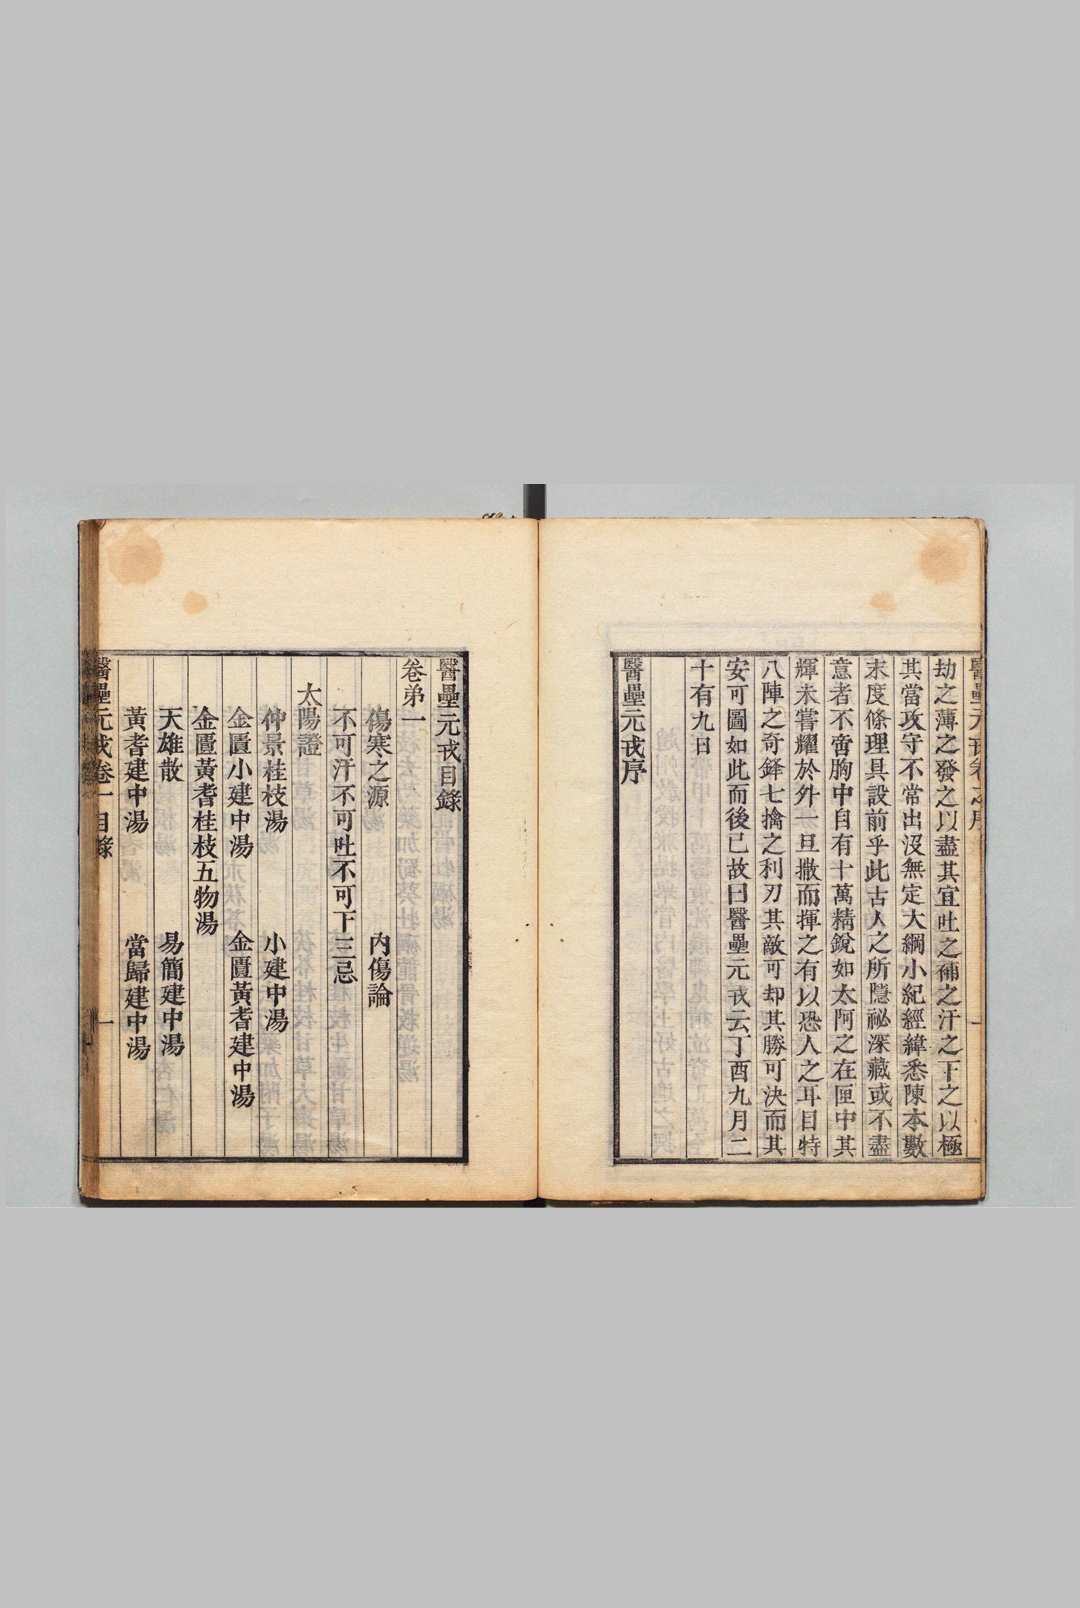 劫之薄之發之以盡其宜吐之補之汗之下之以極
其當攻守不常出沒無定大綱小紀經緯悉陳本數
末度條理具設前乎此古人之所隱祕深藏或不盡
意者不啻胸中自有十萬精銳如太阿之在匣中其
輝未嘗耀於外一旦撒而揮之有以恐人之耳目特
八陣之奇鋒七擒之利刃其敵可却其勝可決而其
安可圖如此而後已故曰醫壘元戎云丁酉九月二
十有九日
醫壘元戎序
醫壘元戎目錄
卷弟一
傷寒之源 內傷論
不可汗不可吐不可下三忌
太陽證
仲景桂枝湯 小建中湯
金匱小建中湯 金匱黃耆建中湯
金匱黃耆桂枝五物湯
天雄散 易簡建中湯
黃耆建中湯 當歸建中湯
醫壘元戎卷一目錄 一